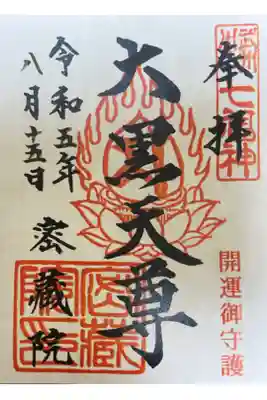 奉拝
七福神
大黒天尊
令和五年
八月十五日
密蔵院
開運御守護